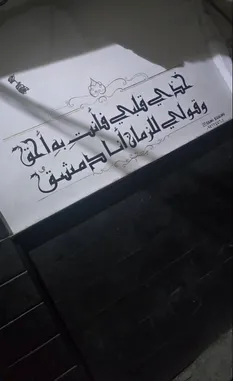 خذي قلبي فأنتِ به أحق
وقولي للزمان أنا دمشق